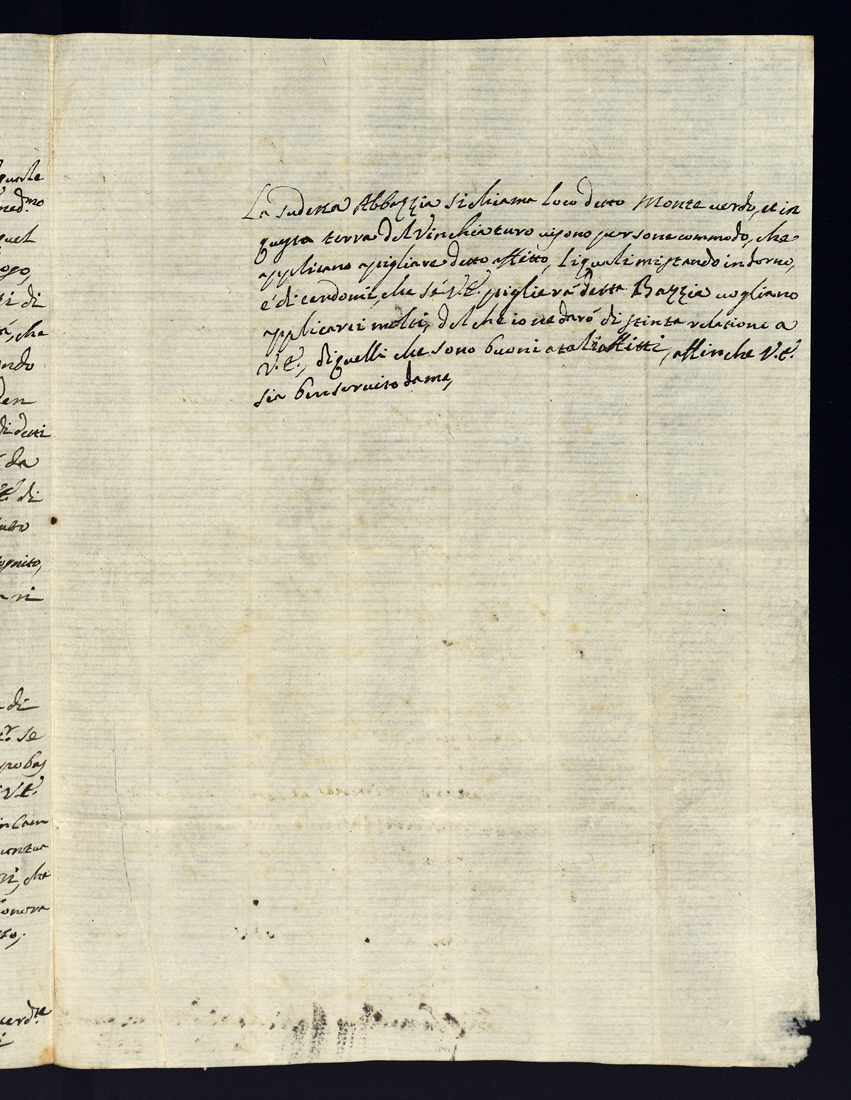 quale
med.mo
quel
di
che
ndo
den
di detti
da
di
di
se
V.E.
che
La sudetta Abbazzia si chiama loco detto Monte uerdo, et in
questa terra del Vinchiaturo ui sono persone commodo, che
applicano a pigliare detto affitto, li quali mi stando indorno,
é di cendomi, che sé V.E. piglierá detta Bazzia uogliano
applicarci molti, del che io ne daró distinta relatione a
V.E., di quelli che sono buoni a tali affitti, affinche V.E.
sia ben seruito da me,